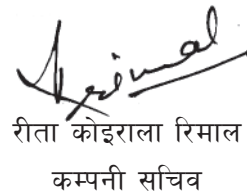 रीता कोइराला रिमाल
कम्पनी सचिव